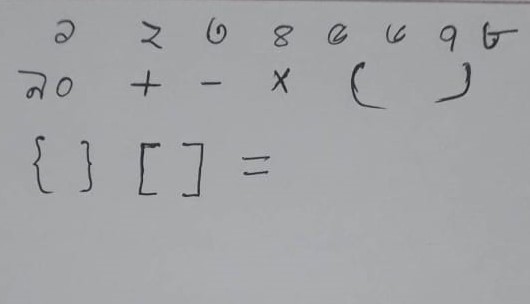 ১ ২ ৩ ৪ ৫ ৬ ৭ ৮
৯০ + - × ( )
{ } [ ] =